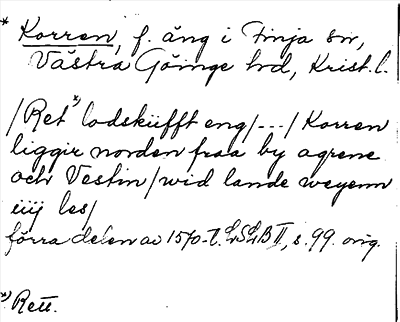 * Korren, f. äng i Finja sn,
Västra Göinge hd, Krist. l.
/Ret* lodskiifft eng/---/Korren
liggir norden fraa by agrene
och Vestin/wid lande weyenn
iiij les/
förra delen av 1570-t. LSLB II, s. 99. orig.
*) Rett.